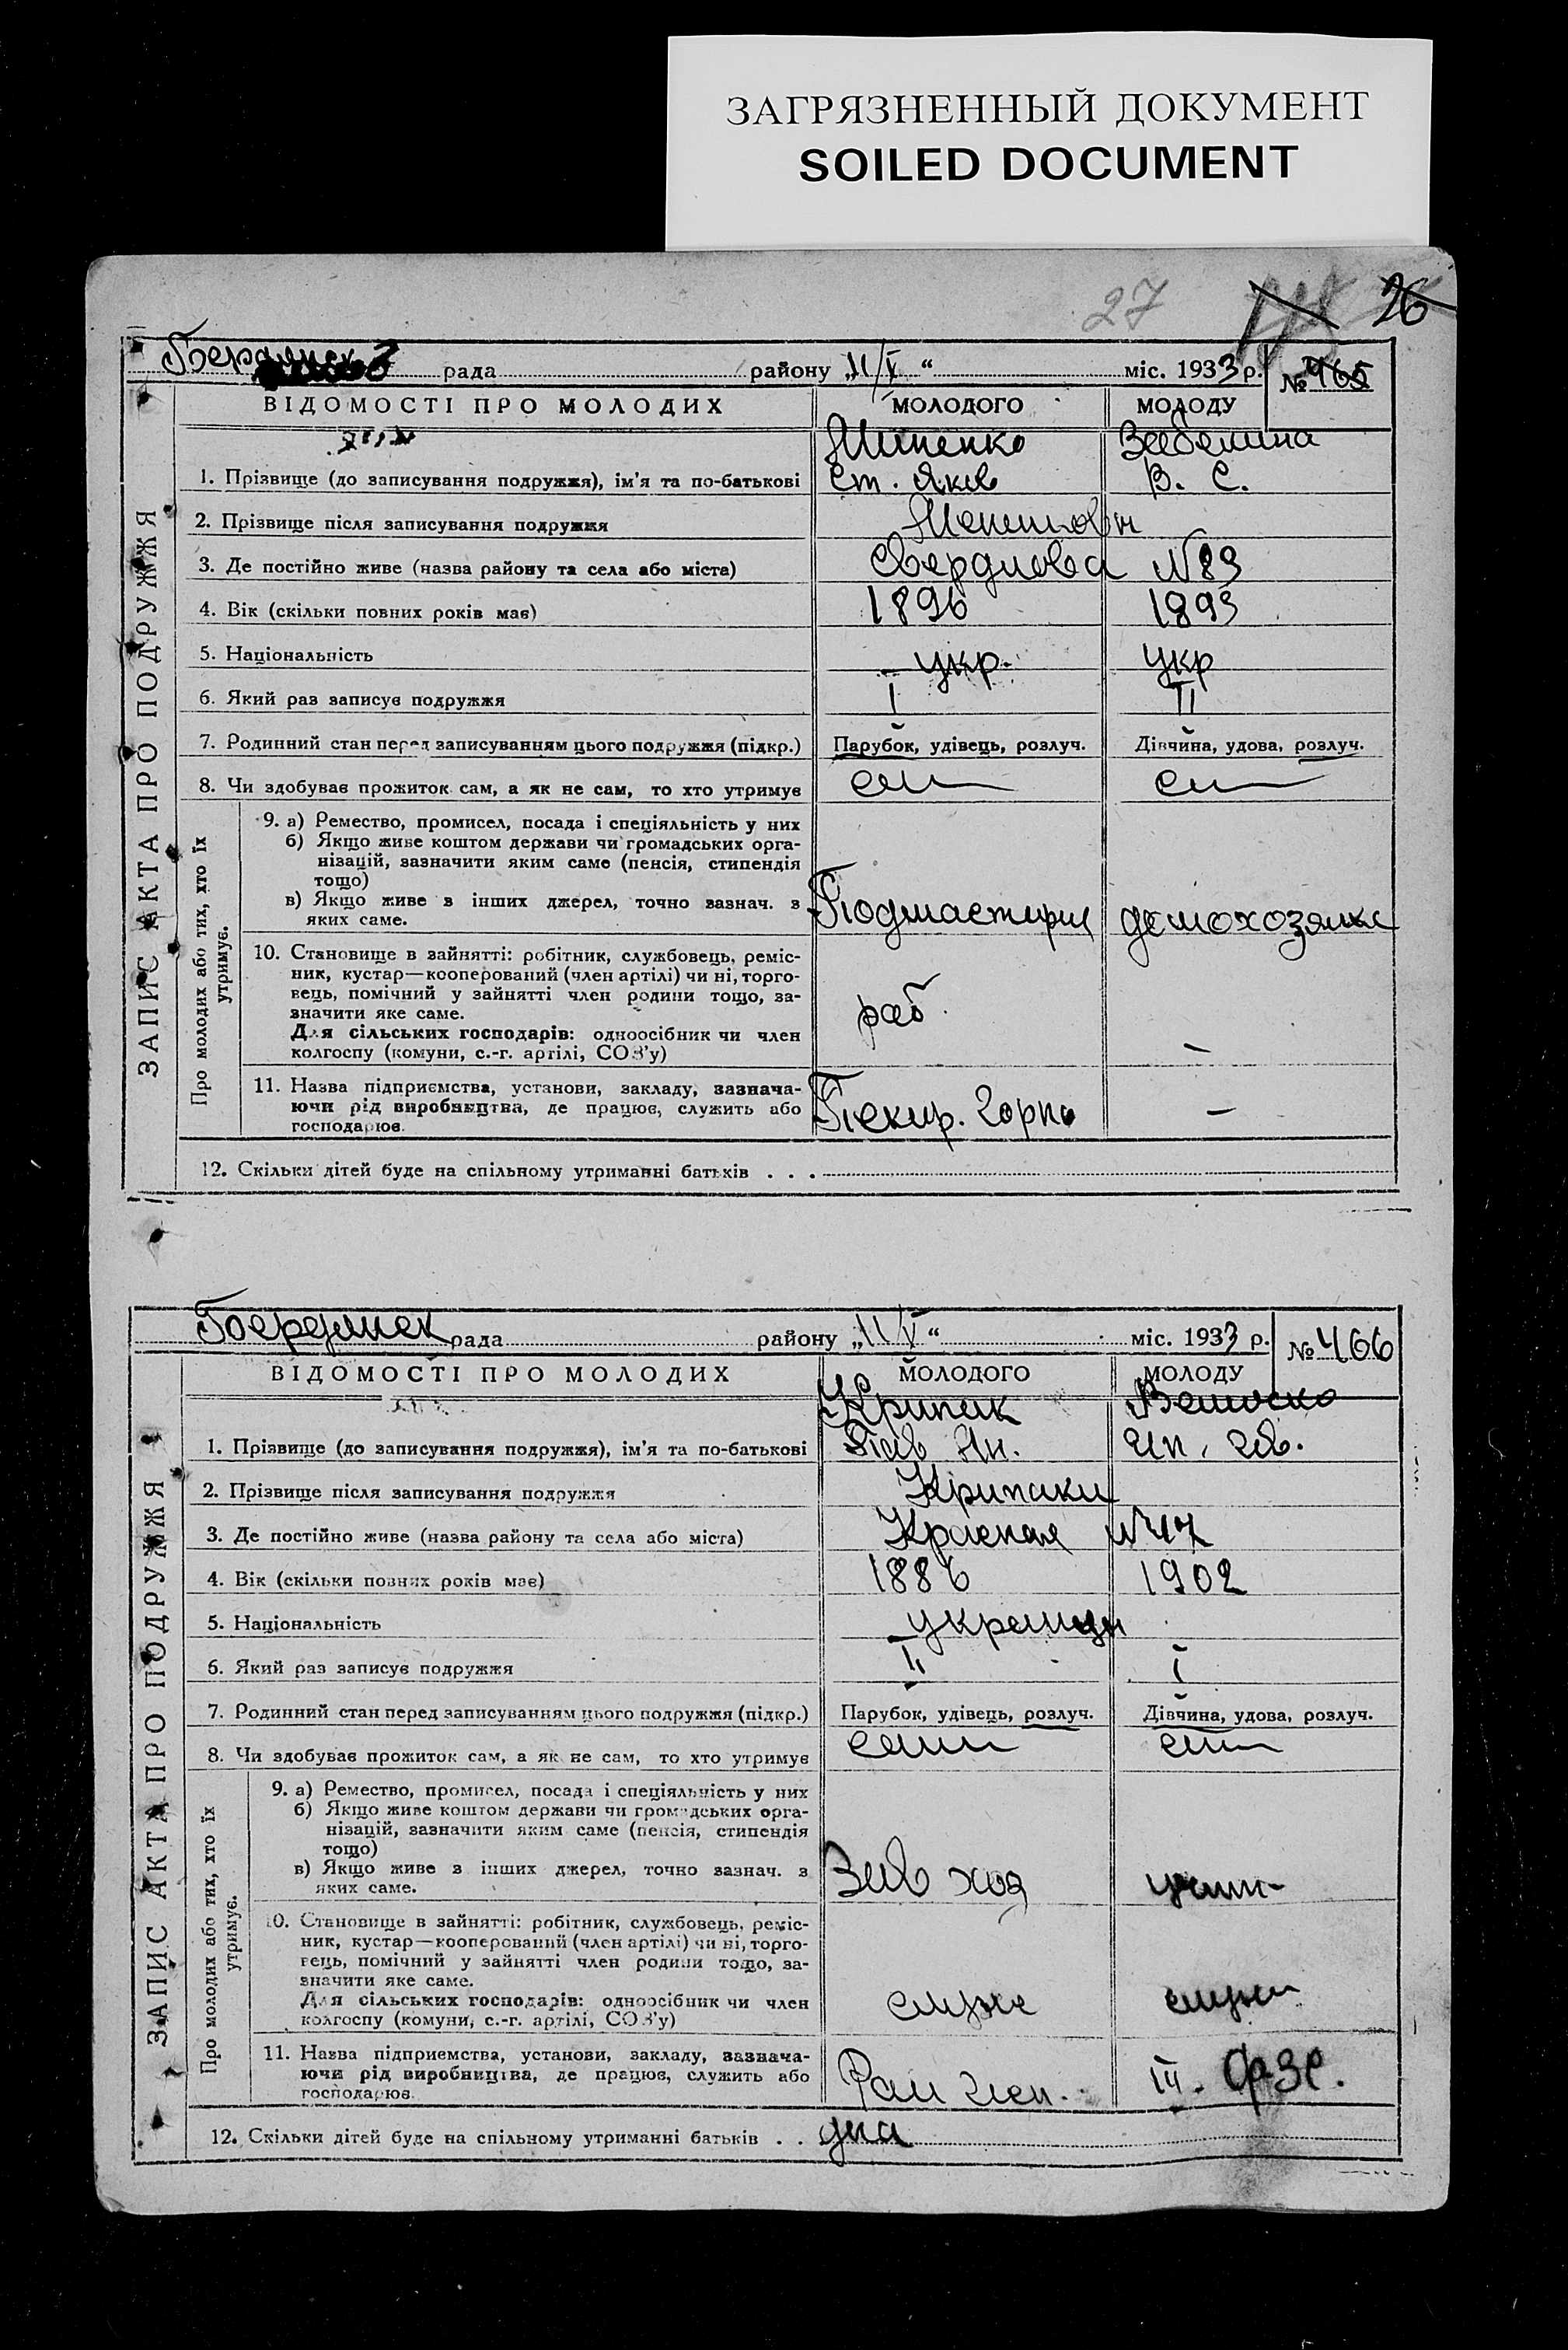 ЗАГРЯЗНЕННЫЙ ДОКУМЕНТ
SOILED DOCUMENT
27
26
Бердянск рада району „11/V“ міс. 1933 р. № 465
ВІДОМОСТІ ПРО МОЛОДИХ МОЛОДОГО МОЛОДУ
ЗАПИС АКТА ПРО ПОДРУЖЖЯ
1. Прізвище (до записування подружжя), ім'я та по-батькові
Ст. Яков В. С.
2. Прізвище після записування подружжя
3. Де постійно живе (назва району та села або міста) Свердлова №83
4. Вік (скільки повних років має) 1896 1893
5. Національність укр. укр
6. Який раз записує подружжя I II
7. Родинний стан перед записуванням цього подружжя (підкр.) Парубок, удівець, розлуч. Дівчина, удова, розлуч.
8. Чи здобував прожиток сам, а як не сам, то хто утримує
Про молодих або тих, хто їх утримує.
9. а) Ремество, промисел, посада і спеціяльність у них
б) Якщо живе коштом держави чи громадських орга-
нізацій, зазначити яким саме (пенсія, стипендія
тощо)
в) Якщо живе з інших джерел, точно зазнач. з
яких саме.
Подмастерье домохозяйка
10. Становище в зайнятті: робітник, службовець, реміс-
ник, кустар—кооперований (член артілі) чи ні, торго-
вець, помічний у зайнятті член родини тощо, за-
значити яке саме.
Для сільських господарів: одноосібник чи член
колгоспу (комуни, с.-г. артілі, СОЗ'у)
раб. –
11. Назва підприємства, установи, закладу, зазнача-
ючи рід виробництва, де працює, служить або
господарює.
Пекар. –
12. Скільки дітей буде на спільному утриманні батьків . . .
Бердянск рада району „11/V“ міс. 1933 р. № 466
ВІДОМОСТІ ПРО МОЛОДИХ МОЛОДОГО МОЛОДУ
ЗАПИС АКТА ПРО ПОДРУЖЖЯ
Крипак
1. Прізвище (до записування подружжя), ім'я та по-батькові Пав. Ан.
2. Прізвище після записування подружжя Крипаки
3. Де постійно живе (назва району та села або міста) Красная №47
4. Вік (скільки повних років має) 1886 1902
5. Національність украинцы
6. Який раз записує подружжя II I
7. Родинний стан перед записуванням цього подружжя (підкр.) Парубок, удівець, розлуч. Дівчина, удова, розлуч.
8. Чи здобував прожиток сам, а як не сам, то хто утримує
Про молодих або тих, хто їх утримує.
9. а) Ремество, промисел, посада і спеціяльність у них
б) Якщо живе коштом держави чи громадських орга-
нізацій, зазначити яким саме (пенсія, стипендія
тощо)
в) Якщо живе з інших джерел, точно зазнач. з
яких саме.
Зав хоз учит-
10. Становище в зайнятті: робітник, службовець, реміс-
ник, кустар—кооперований (член артілі) чи ні, торго-
вець, помічний у зайнятті член родини тощо, за-
значити яке саме.
Для сільських господарів: одноосібник чи член
колгоспу (комуни, с.-г. артілі, СОЗ'у)
служ служ
11. Назва підприємства, установи, закладу, зазнача-
ючи рід виробництва, де працює, служить або
господарює.
III. ФЗС.
12. Скільки дітей буде на спільному утриманні батьків . .